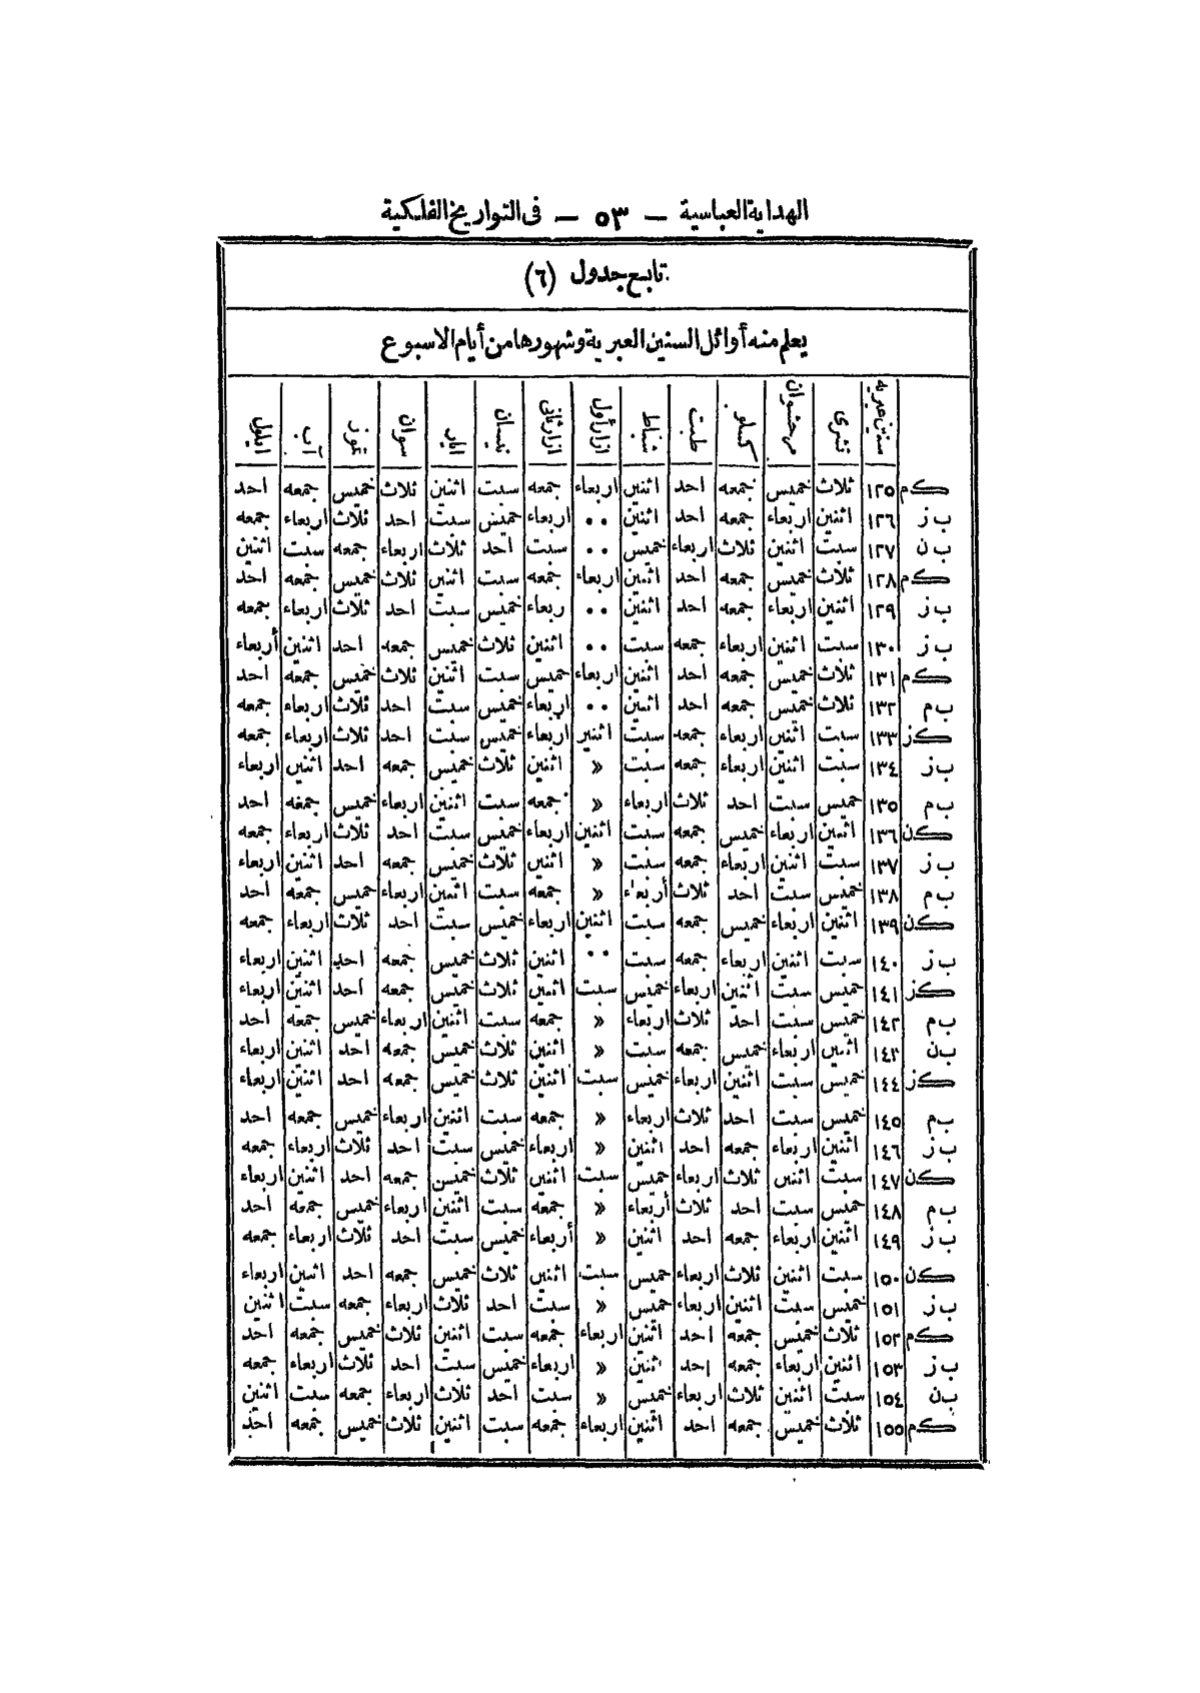 الهداية العباسية — ٥٣ — فى التواريخ الفلكية
تابع جدول (٦)
يعلم منه أوائل السنين العبرية وشهورها من أيام الاسبوع
سنين عبريه تشرى مرحشوان كسلو طبت شباط ازار أول ازار ثانى نيسان ايار سوان تموز آب ايلول
كم ١٢٥ ثلاث خميس جمعه احد اثنين اربعاء جمعه سبت اثنين ثلاث خميس جمعه احد
ب ز ١٢٦ اثنين اربعاء جمعه احد اثنين ٠٠ اربعاء خميس سبت احد ثلاث اربعاء جمعه
ب ن ١٢٧ سبت اثنين ثلاث اربعاء خميس ٠٠ سبت احد ثلاث اربعاء جمعه سبت اثنين
كم ١٢٨ ثلاث خميس جمعه احد اثنين اربعاء جمعه سبت اثنين ثلاث خميس جمعه احد
ب ز ١٢٩ اثنين اربعاء جمعه احد اثنين ٠٠ ربعاء خميس سبت احد ثلاث اربعاء جمعه
ب ز ١٣٠ سبت اثنين اربعاء جمعه سبت ٠٠ اثنين ثلاث خميس جمعه احد اثنين أربعاء
كم ١٣١ ثلاث خميس جمعه احد اثنين اربعاء خميس سبت اثنين ثلاث خميس جمعه احد
ب م ١٣٢ ثلاث خميس جمعه احد اثنين ٠٠ اربعاء خميس سبت احد ثلاث اربعاء جمعه
كز ١٣٣ سبت اثنين اربعاء جمعه سبت اثنين اربعاء خميس سبت احد ثلاث اربعاء جمعه
ب ز ١٣٤ سبت اثنين اربعاء جمعه سبت » اثنين ثلاث خميس جمعه احد اثنين اربعاء
ب م ١٣٥ خميس سبت احد ثلاث اربعاء » جمعه سبت اثنين اربعاء خميس جمعه احد
كن ١٣٦ اثنين اربعاء خميس جمعه سبت اثنين اربعاء خميس سبت احد ثلاث اربعاء جمعه
ب ز ١٣٧ سبت اثنين اربعاء جمعه سبت » اثنين ثلاث خميس جمعه احد اثنين اربعاء
ب م ١٣٨ خميس سبت احد ثلاث أربعاء » جمعه سبت اثنين اربعاء خميس جمعه احد
كن ١٣٩ اثنين اربعاء خميس جمعه سبت اثنين اربعاء خميس سبت احد ثلاث اربعاء جمعه
ب ز ١٤٠ سبت اثنين اربعاء جمعه سبت ٠٠ اثنين ثلاث خميس جمعه احد اثنين اربعاء
كز ١٤١ خميس سبت اثنين اربعاء خميس سبت اثنين ثلاث خميس جمعه احد اثنين اربعاء
ب م ١٤٢ خميس سبت احد ثلاث اربعاء » جمعه سبت اثنين اربعاء خميس جمعه احد
ب ن ١٤٣ اثنين اربعاء خميس جمعه سبت » اثنين ثلاث خميس جمعه احد اثنين اربعاء
كز ١٤٤ خميس سبت اثنين اربعاء خميس سبت اثنين ثلاث خميس جمعه احد اثنين اربعاء
ب م ١٤٥ خميس سبت احد ثلاث اربعاء » جمعه سبت اثنين اربعاء خميس جمعه احد
ب ز ١٤٦ اثنين اربعاء جمعه احد اثنين » اربعاء خميس سبت احد ثلاث اربعاء جمعه
كن ١٤٧ سبت اثنين ثلاث اربعاء خميس سبت اثنين ثلاث خميس جمعه احد اثنين اربعاء
ب م ١٤٨ خميس سبت احد ثلاث أربعاء » جمعه سبت اثنين اربعاء خميس جمعه احد
ب ز ١٤٩ اثنين اربعاء جمعه احد اثنين » أربعاء خميس سبت احد ثلاث اربعاء جمعه
كن ١٥٠ سبت اثنين ثلاث اربعاء خميس سبت اثنين ثلاث خميس جمعه احد اثنين اربعاء
ب ز ١٥١ خميس سبت اثنين اربعاء خميس » سبت احد ثلاث اربعاء جمعه سبت اثنين
كم ١٥٢ ثلاث خميس جمعه احد اثنين اربعاء جمعه سبت اثنين ثلاث خميس جمعه احد
ب ز ١٥٣ اثنين اربعاء جمعه احد اثنين » اربعاء خميس سبت احد ثلاث اربعاء جمعه
ب ن ١٥٤ سبت اثنين ثلاث اربعاء خميس » سبت احد ثلاث اربعاء جمعه سبت اثنين
كم ١٥٥ ثلاث خميس جمعه احد اثنين اربعاء جمعه سبت اثنين ثلاث خميس جمعه احد